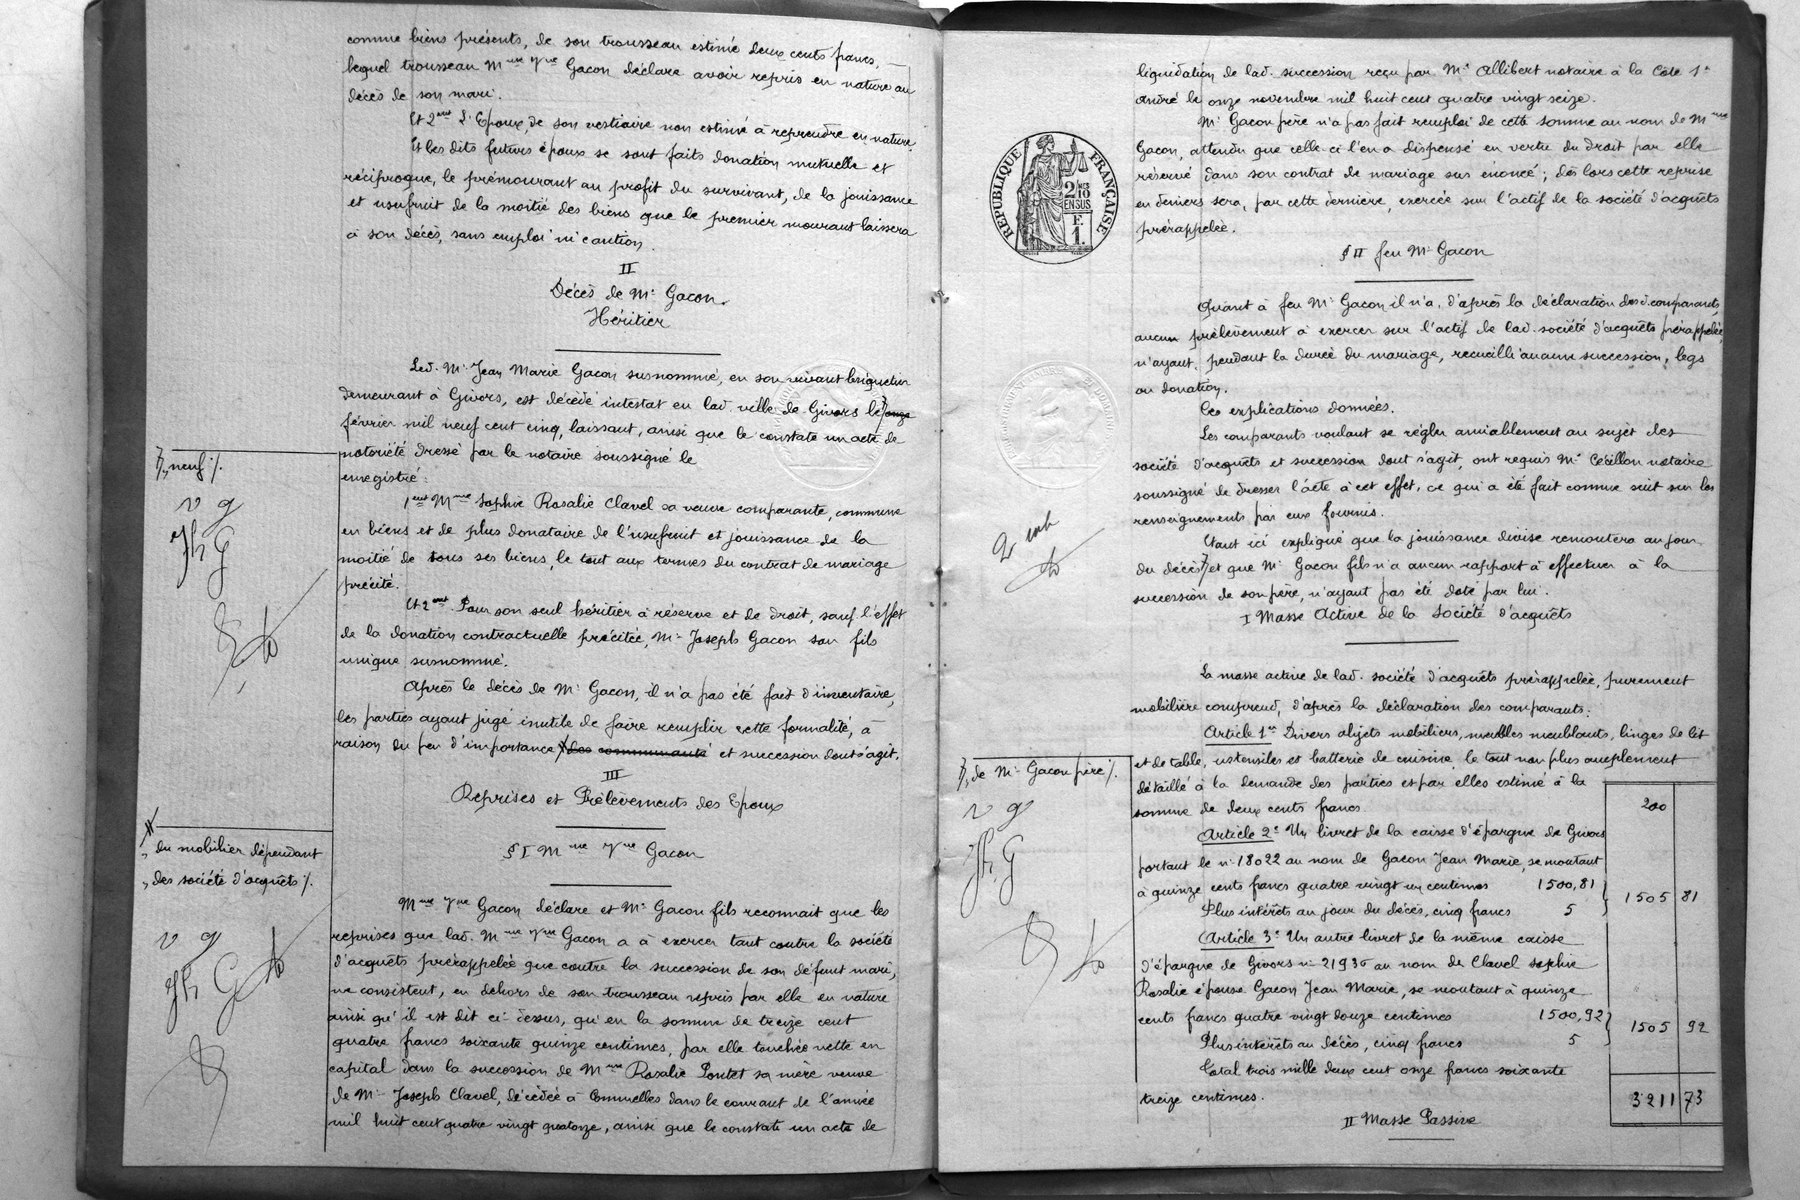 comme biens présents, de son trousseau estimé deux cents francs,
lequel trousseau Mme Vve Gacon déclare avoir repris en nature au
décès de son mari.
Et 2ent L'Epoux, de son vestiaire non estimé à reprendre en nature.
Et les dits futurs époux se sont faits donation mutuelle et
réciproque, le prémourant au profit du survivant, de la jouissance
et usufruit de la moitié des biens que le premier mourant laissera
à son décès, sans emploi ni caution.
II
Décès de Mr Gacon.
Héritier
Led. Mr Jean Marie Gacon susnommé, en son vivant briquetier
demeurant à Givors, est décédé intestat en lad. ville de Givors le onze
février mil neuf cent cinq, laissant, ainsi que le constate un acte de
notoriété dressé par le notaire soussigné le
enregistré:
1ent Mme Sophie Rosalie Clavel sa veuve comparante, commune
en biens et de plus donataire de l'usufruit et jouissance de la
moitié de tous ses biens, le tout aux termes du contrat de mariage
précité.
Et 2ent Pour son seul héritier à réserve et de droit, sauf l'effet
de la donation contractuelle précitée, Mr Joseph Gacon son fils
unique susnommé.
Après le décès de Mr Gacon, il n'a pas été fait d'inventaire,
les parties ayant jugé inutile de faire remplir cette formalité, à
raison du peu d'importance des communauté et succession dont s'agit.
III
Reprises et Prélèvements des Epoux
§ I Mme Vve Gacon
Mme Vve Gacon déclare et Mr Gacon fils reconnait que les
reprises que lad. Mme Vve Gacon a à exercer tant contre la société
d'acquêts prérappelée que contre la succession de son défunt mari,
ne consistent, en dehors de son trousseau repris par elle en nature
ainsi qu'il est dit ci dessus, qu'en la somme de treize cent
quatre francs soixante quinze centimes, par elle touchée nette en
capital dans la succession de Mme Rosalie Pontet sa mère veuve
de Mr Joseph Clavel, décédée à Commelles dans le courant de l'année
mil huit cent quatre vingt quatorze, ainsi que le constate un acte de
neuf /.
v g
Jh G
du mobilier dépendant
des société d'acquêts /.
v g
Jh G
liquidation de lad. succession reçu par Me Allibert notaire à la Côte St
André le onze novembre mil huit cent quatre vingt seize.
Mr Gacon père n'a pas fait remploi de cette somme au nom de Mme
Gacon, attendu que celle-ci l'en a dispensé en vertu du droit par elle
réservé dans son contrat de mariage sus énoncé; dès lors cette reprise
en deniers sera, par cette dernière, exercée sur l'actif de la société d'acquêts
prérappelée.
§ II feu Mr Gacon
Quant à feu Mr Gacon il n'a, d'après la déclaration des d. comparants,
aucun prélèvement à exercer sur l'actif de lad. société d'acquêts prérappelée,
n'ayant, pendant la durée du mariage, recueilli aucune succession, legs
ou donation.
Ces explications données.
Les comparants voulant se régler amiablement au sujet des
société d'acquêts et succession dont s'agit, ont requis Me Cécillon notaire
soussigné de dresser l'acte à cet effet, ce qui a été fait comme suit sur les
renseignements par eux fournis.
Etant ici expliqué que la jouissance divise remontera au jour
du décès et que Mr Gacon fils n'a aucun rapport à effectuer à la
succession de son père, n'ayant pas été doté par lui.
I Masse Active de la Société d'acquêts
La masse active de lad. société d'acquêts prérappelée, purement
mobilière comprend, d'après la déclaration des comparants:
Article 1er Divers objets mobiliers, meubles meublants, linges de lit
et de table, ustensiles et batterie de cuisine, le tout non plus amplement
détaillé à la demande des parties et par elles estimé à la
somme de deux cents francs 200
Article 2e Un livret de la caisse d'épargne de Givors
portant le no 18022 au nom de Gacon Jean Marie, se montant
à quinze cents francs quatre vingt un centimes 1500,81
Plus intérêts au jour du décès, cinq francs 5 1505 81
Article 3e Un autre livret de la même caisse
d'épargne de Givors no 21936 au nom de Clavel Sophie
Rosalie épouse Gacon Jean Marie, se montant à quinze
cents francs quatre vingt douze centimes 1500,92
Plus intérêts au décès, cinq francs 5 1505 92
Total trois mille deux cent onze francs soixante
treize centimes. 3211 73
II Masse Passive
de Mr Gacon père /.
v g
Jh G
RÉPUBLIQUE FRANÇAISE
2/10 EN SUS
F. 1.